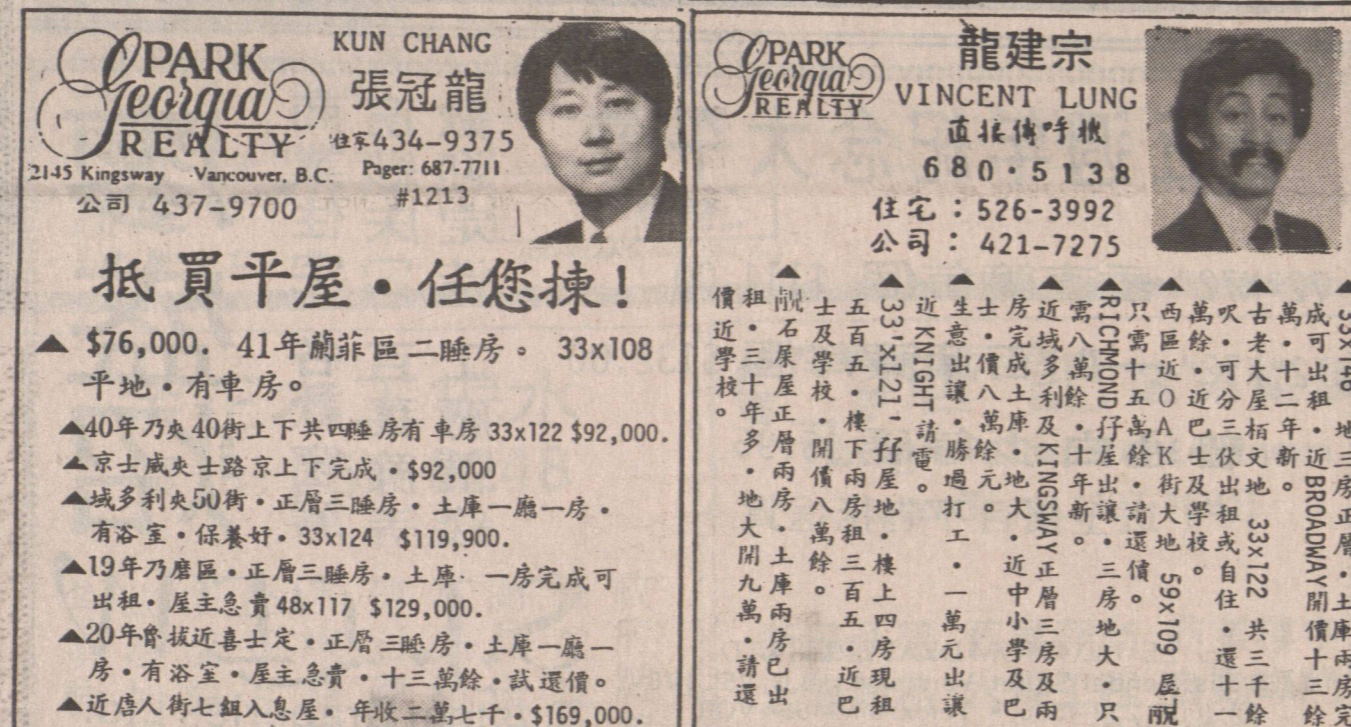 PARK
Georgia
REALTY
2145 Kingsway Vancouver, B.C.
公司 437-9700
KUN CHANG
張冠龍
住家434-9375
Pager: 687-7711
#1213
抵買平屋・任您揀!
▲ $76,000. 41年蘭菲區二睡房。 33x108
平地・有車房。
▲40年乃夾40街上下共四睡房有車房 33x122 $92,000.
▲京士威夾士路京上下完成・$92,000
▲域多利夾50街・正層三睡房・土庫一廳一房・
有浴室・保養好・33x124 $119,900.
▲19年乃磨區・正層三睡房・土庫 一房完成可
出租・屋主急賣48x117 $129,000.
▲20年會拔近喜士定・正層三睡房・土庫一廳一
房・有浴室・屋主急賣・十三萬餘・試還價。
▲近唐人街七組入息屋・年收二萬七千・$169,000.
PARK
Georgia
REALTY
龍建宗
VINCENT LUNG
直接傳呼機
680・5138
住宅:526-3992
公司:421-7275
地三房正層・土庫兩房完
成可出租・近BROADWAY開價十三餘
萬・十二年新。
▲古老大屋栢文地 33x122 共三千餘
呎・可分三伙出租或自住・還十一
萬餘・近巴士及學校。
▲西區近OAK街大地 59x109 屋靚
只需十五萬餘・請還價。
▲RICHMOND孖屋出讓・三房地大・只
需八萬餘・十年新。
▲近域多利及KINGSWAY正層三房及兩
房完成土庫・地大・近中小學及巴
士・價八萬餘元。
▲生意出讓・勝過打工・一萬元出讓
近KNIGHT請電。
▲33'x121'孖屋地・樓上四房現租
五百五・樓下兩房租三百五・近巴
士及學校・開價八萬餘。
▲靚石屎屋正層兩房・土庫兩房已出
租・三十年多・地大開九萬・請還
價近學校。